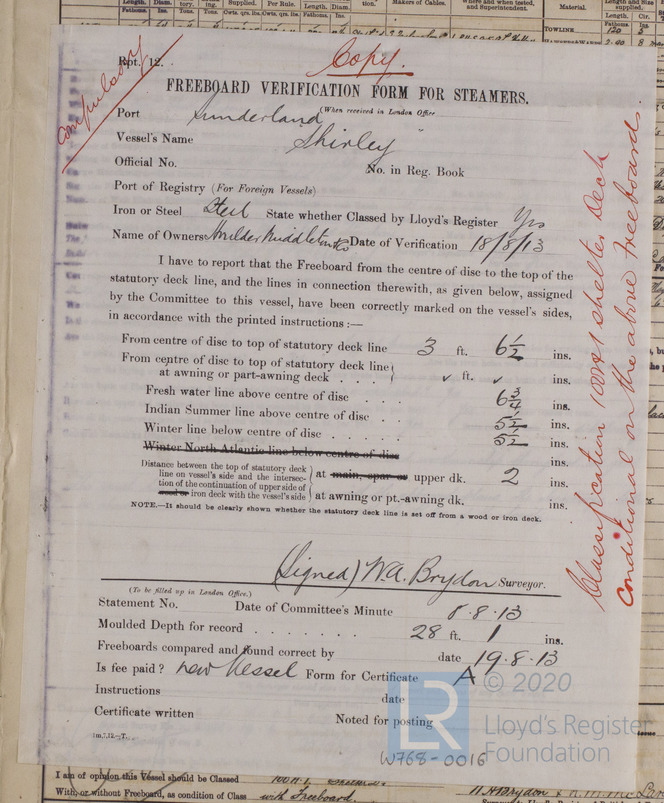 Length. Diam.
Supplied. Per Rule. Length. Diam.
Makers of Cables.
Where and when tested, and Superintendent.
Material.
Length and Size supplied.
Fathoms. Ins. Tons. Tons. Cwts. qrs. lbs. Cwts. qrs. lbs. Fathoms. Ins.
Fathoms. Ins. Cir.
TOWLINE 120
Rpt. 12. Copy.
compulsory
FREEBOARD VERIFICATION FORM FOR STEAMERS.
Port Sunderland (When received in London Office
Vessel's Name "Shirley"
Official No. No. in Reg. Book
Port of Registry (For Foreign Vessels)
Iron or Steel Steel State whether Classed by Lloyd's Register Yes
Name of Owners Houlder Middleton & Co Date of Verification 18/8/13
I have to report that the Freeboard from the centre of disc to the top of the
statutory deck line, and the lines in connection therewith, as given below, assigned
by the Committee to this vessel, have been correctly marked on the vessel's sides,
in accordance with the printed instructions :—
From centre of disc to top of statutory deck line 3 ft. 6½ ins.
From centre of disc to top of statutory deck line
at awning or part-awning deck . . . ✓ ft. ✓ ins.
Fresh water line above centre of disc . . . 6¾ ins.
Indian Summer line above centre of disc . . . 5½ ins.
Winter line below centre of disc . . . . 5½ ins.
Winter North Atlantic line below centre of disc ins.
Distance between the top of statutory deck
line on vessel's side and the intersec-
tion of the continuation of upper side of
wood or iron deck with the vessel's side
at main, spar or upper dk. 2 ins.
at awning or pt.-awning dk. ins.
NOTE.—It should be clearly shown whether the statutory deck line is set off from a wood or iron deck.
(Signed) W.A. Brydon Surveyor.
(To be filled up in London Office.)
Statement No. Date of Committee's Minute 8.8.13
Moulded Depth for record . . . . . . . 28 ft. 1 ins.
Freeboards compared and found correct by date 19.8.13
Is fee paid? new Vessel Form for Certificate A
Instructions date
Certificate written Noted for posting
1m,7,12.—T.
Classification 100A1 shelter Deck
conditional on the above freeboards
LR
© 2020
Lloyd's Register
Foundation
W768-0016
I am of opinion this Vessel should be Classed 100A1.
With, or without Freeboard, as condition of Class with Freeboard.